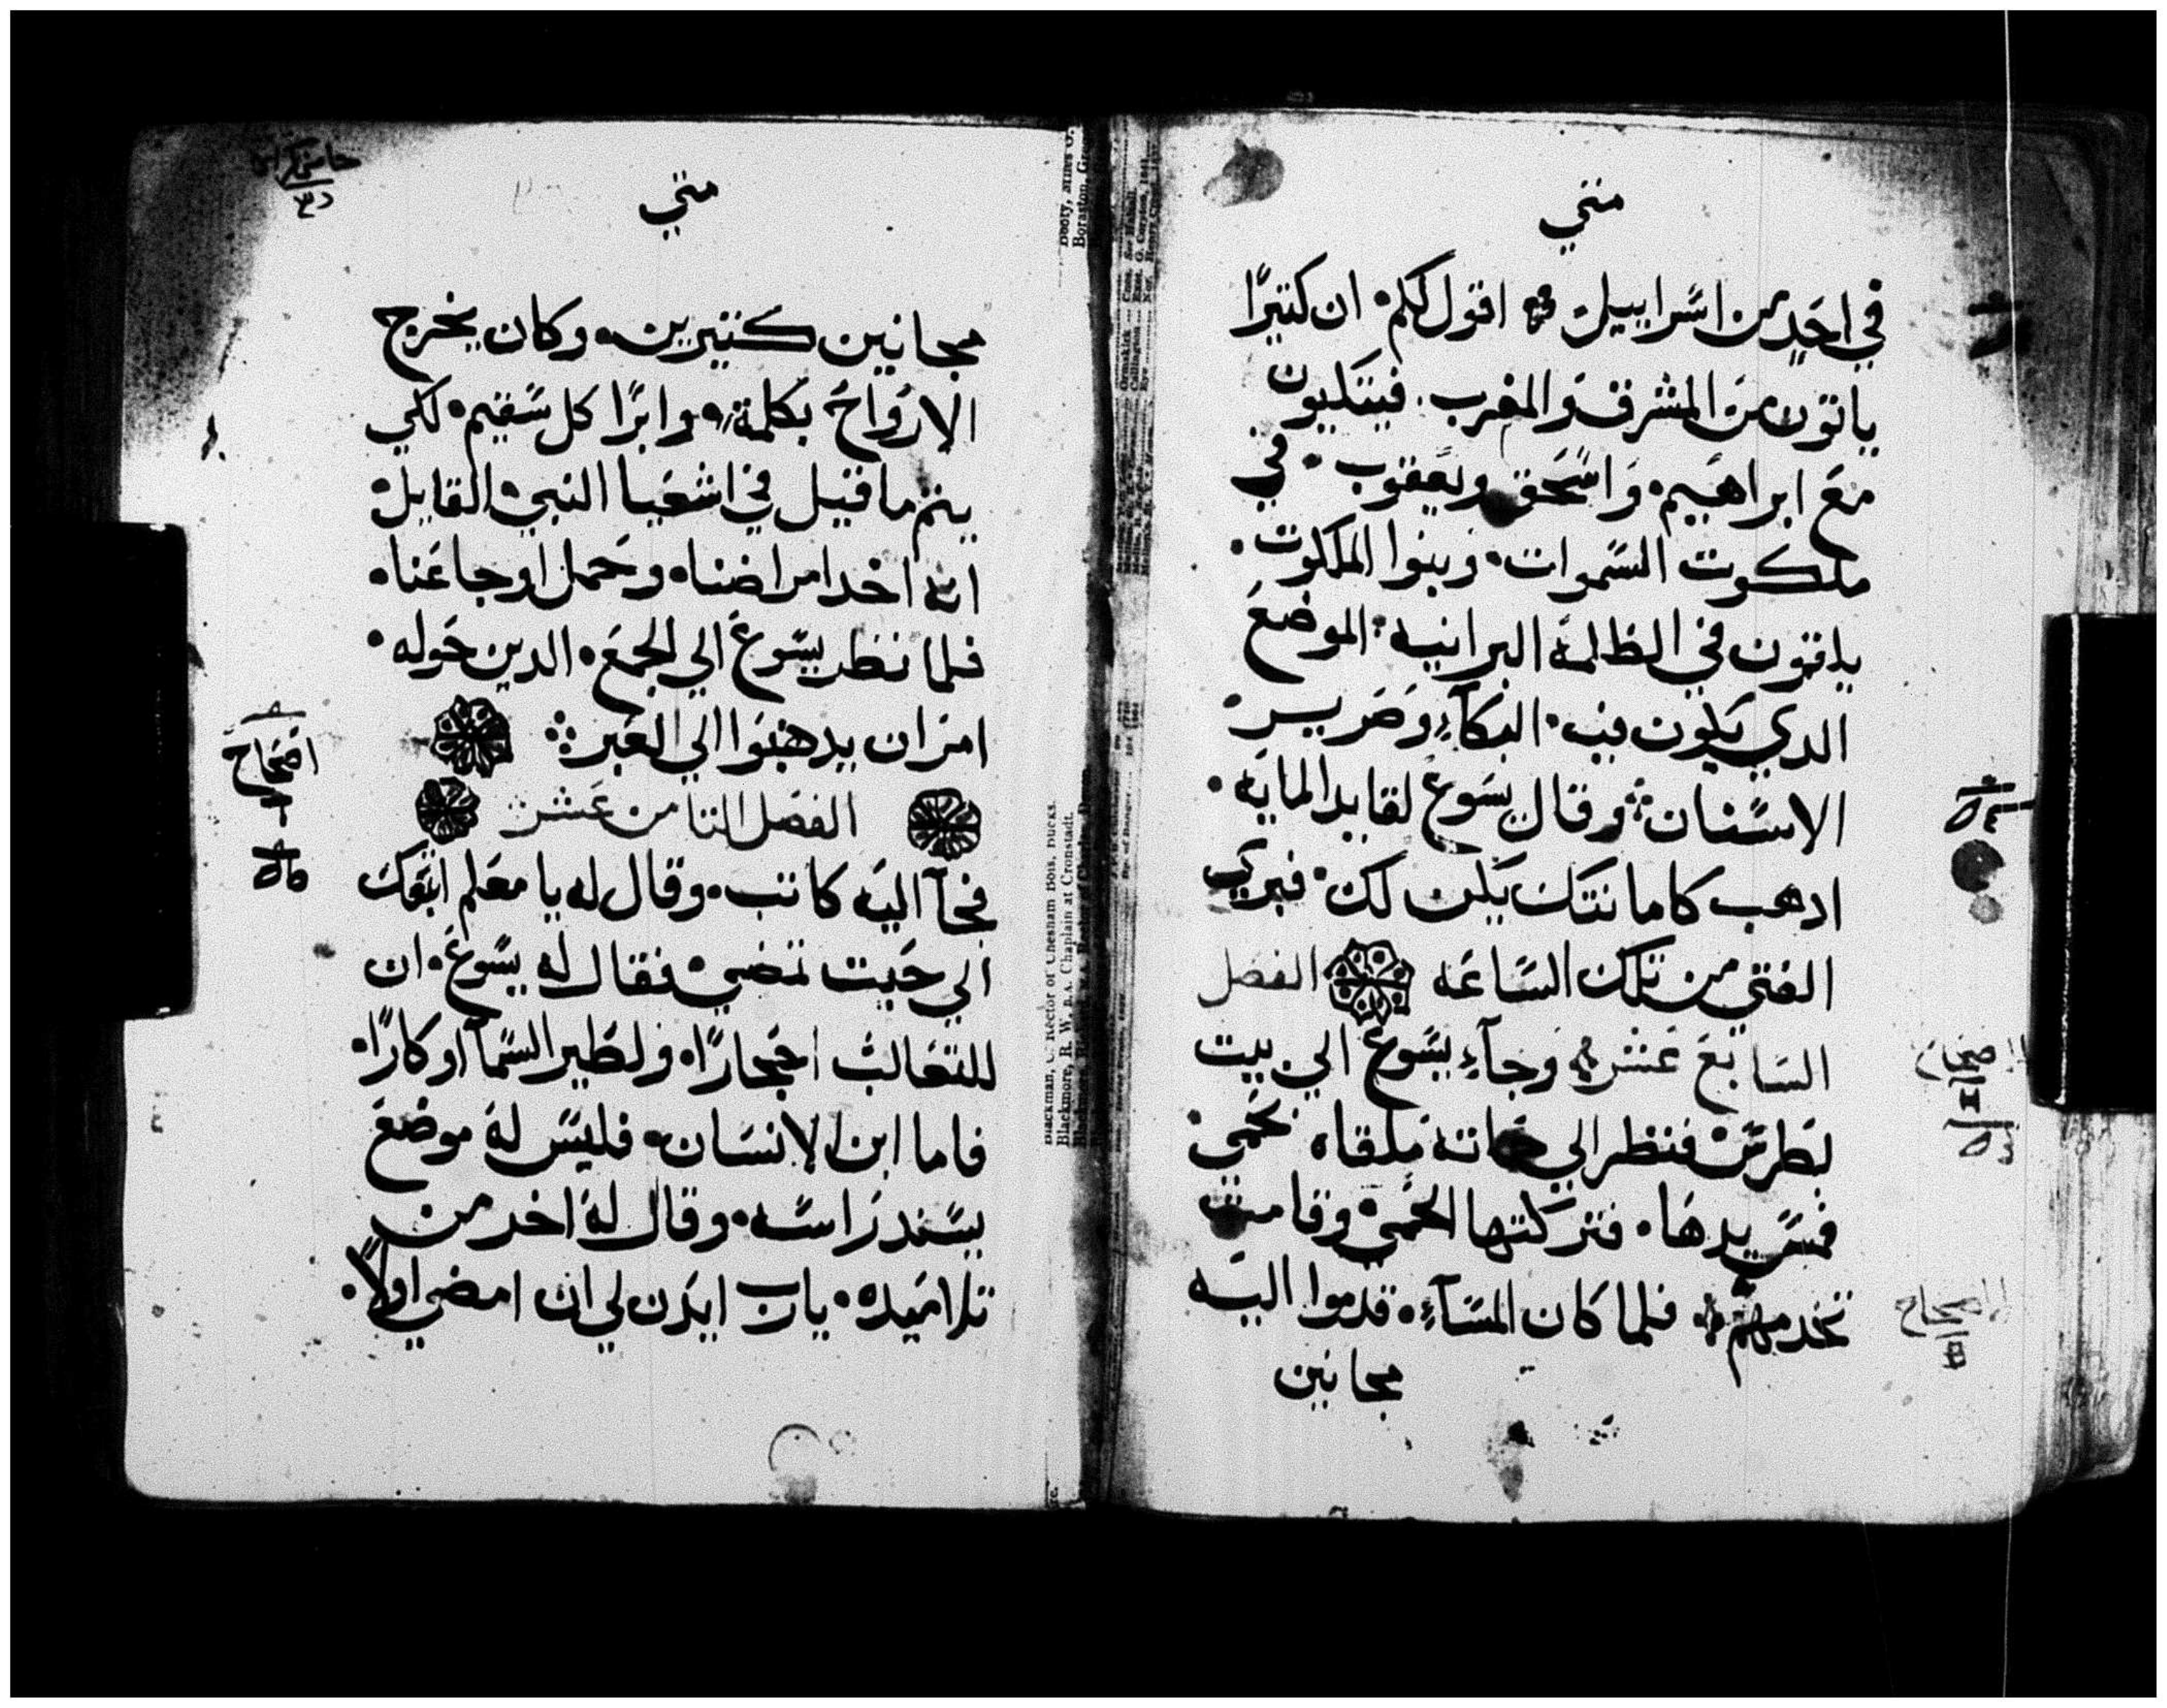 متي
في احد من اسراييل اقول لكم ان كتيرًا
ياتون من المشرق والمغرب فيتكيون
مع ابراهيم واسحق ويعقوب في
ملكوت السموات وبنوا الملكوت
يلقون في الظلمة البرانيه الموضع
الدي يكون فيه البكآء وصرير
الاسنان وقال يسوع لقايد المايه
ادهب كامانتك يكن لك فبري
الفتي من تلك الساعه الفصل
السابع عشر وجآء يسوع الي بيت
بطرس فنظر الي حماته ملقاه بحمي
فمس يدها فتركتها الحمي وقامت
تخدمهم فلما كان المسآء قدموا اليه
مجانين
متي
مجانين كتيرين وكان يخرج
الارواح بكلمة وابرا كل سقيم لكي
يتم ما قيل في اشعيا النبي القايل
انه اخد امراضنا وحمل اوجاعنا
فلما نظر يسوع الي الجمع الدين حوله
امر ان يدهبوا الي العبر
الفصل التامن عشر
فجآ اليه كاتب وقال له يا معلم اتبعك
الي حيت تمضي فقال له يسوع ان
للتعالب اجحارًا ولطير السمآ اوكارًا
فاما ابن الانسان فليس له موضع
يسند راسه وقال له اخر من
تلاميده يارب ايدن لي ان امضي اولًا
اصحاح